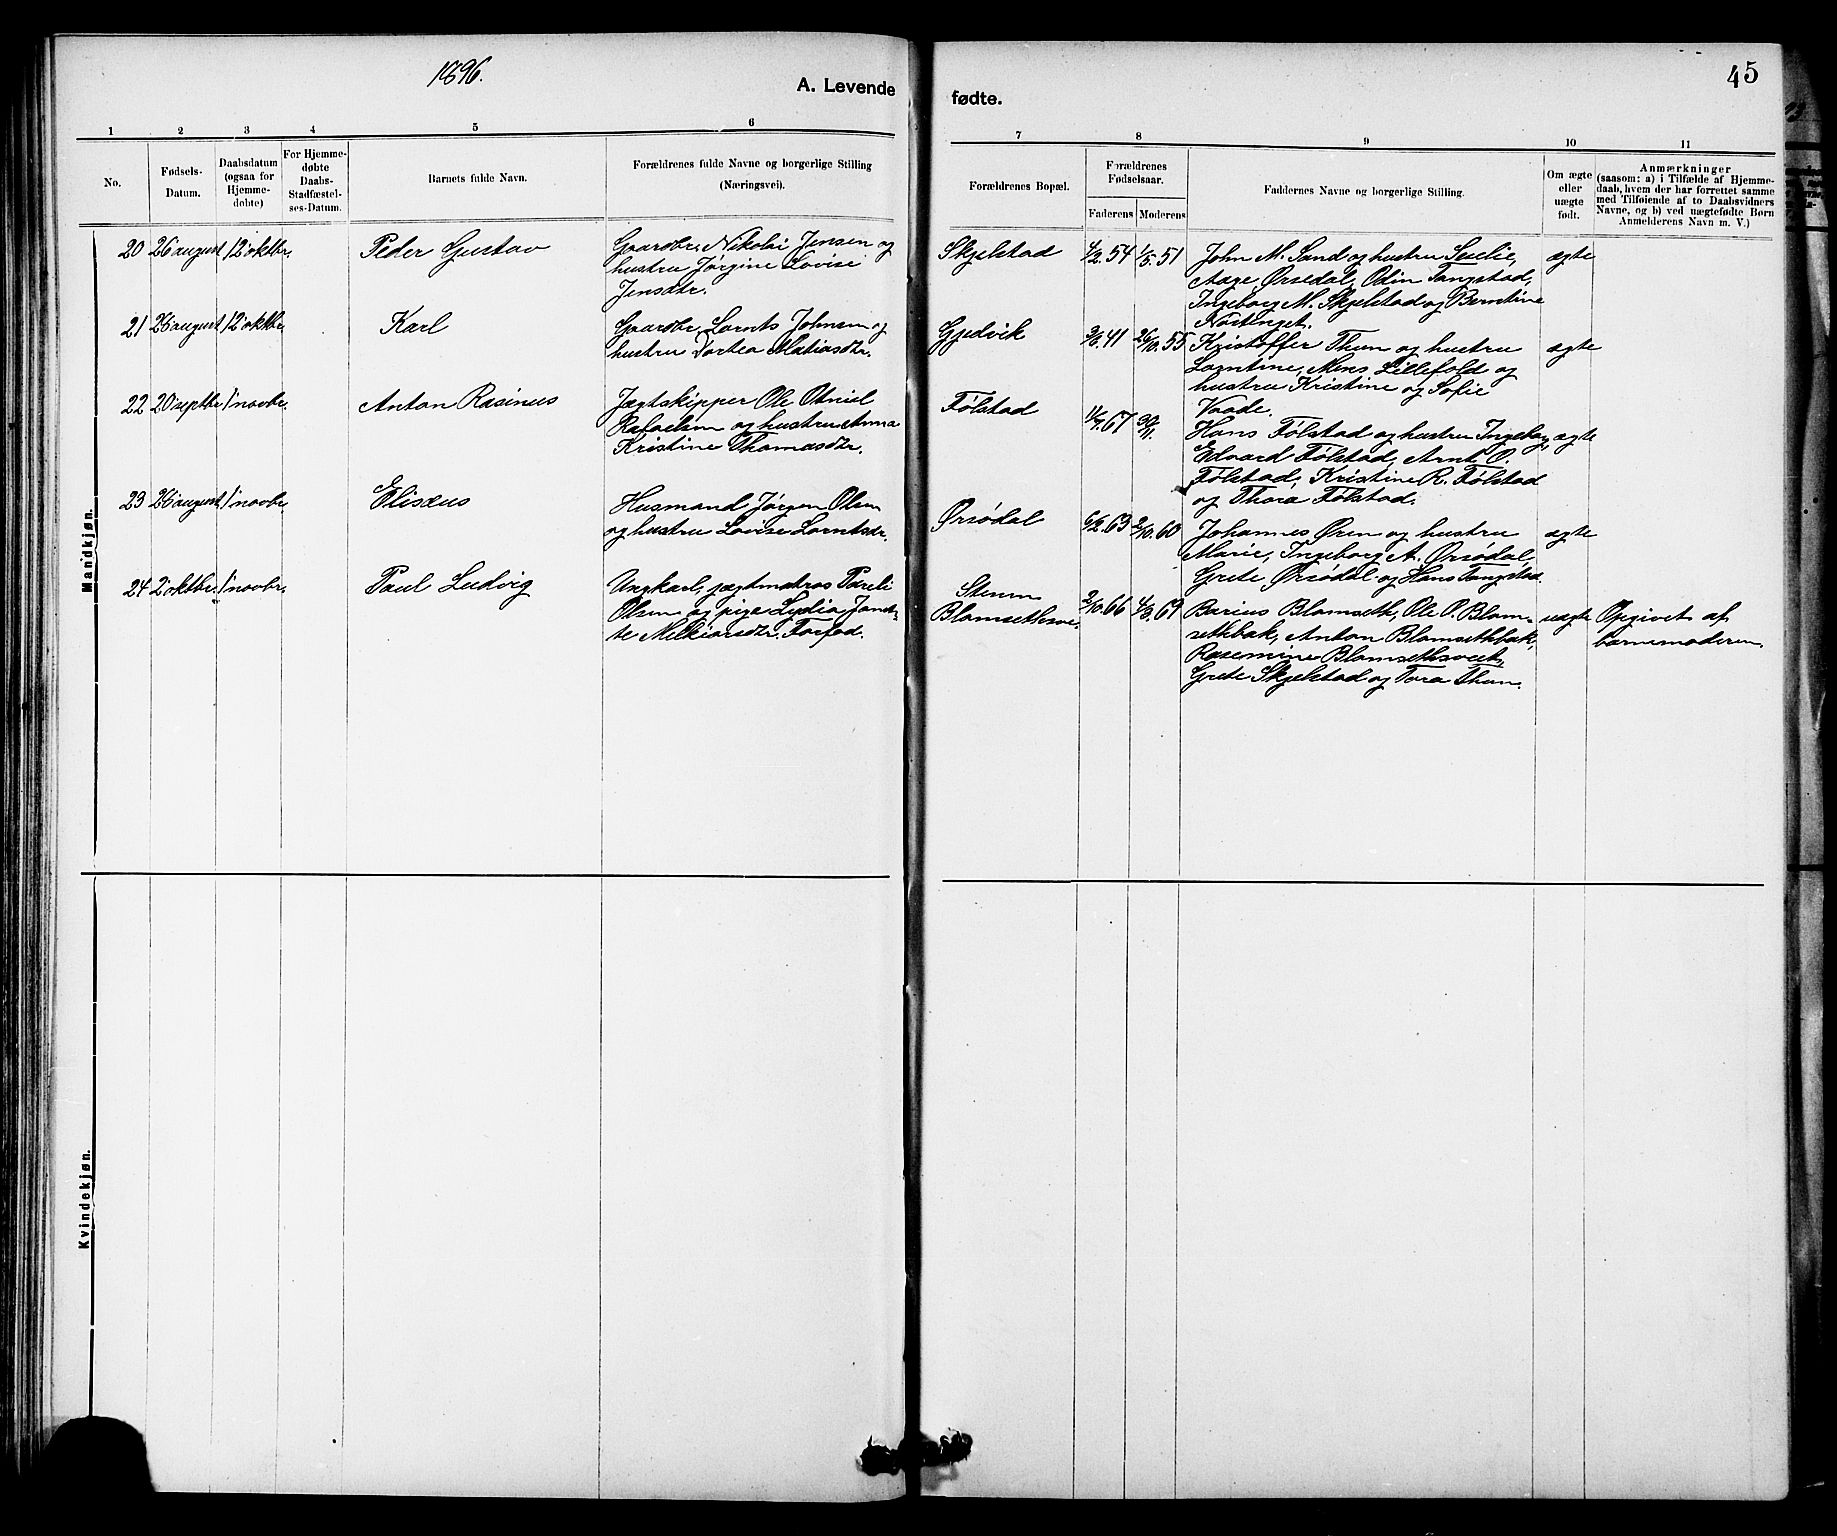 1896.
A. Levende
fødte.
45
1 2 3 4 5 6 7 8 9 10 11
No.
Fødsels-
Datum.
Daabsdatum
(ogsaa for
Hjemme-
døbte)
For Hjemme-
døbte
Daabs-
Stadfæstel-
ses-Datum.
Barnets fulde Navn.
Forældrenes fulde Navne og borgerlige Stilling
(Næringsvei).
Forældrenes Bopæl.
Forældrenes
Fødselsaar.
Faderens Moderens
Faddernes Navne og borgerlige Stilling.
Om ægte
eller
uægte
født.
Anmærkninger
(saasom: a) i Tilfælde af Hjemme-
daab, hvem der har forrettet samme
med Tilføiende af to Daabsvidners
Navne, og b) ved uægtefødte Børn
Anmelderens Navn m. V.)
Mandkjøn.
20 26 august 12 oktbr. Peder Gustav
Gaardbr. Nikolai Jensen og
hustru Jørgine Lovise
Jensdtr.
Skjelstad 4/2.54 1/5.51
John M. Sand og hustru
Aage Ørsedal, Otin Tangstad,
Ingeborg M. Skjelstad og Berntine
ægte
21 26 august 12 oktbr. Karl
Gaardbr. Lornts Johnsen og
hustru Dortea Matiasdtr.
Gjedvik 41 55
Kristoffer Thun og hustru
Lorntine, Mons Lillefold og
hustru Kristine og Sofie
Vaade.
ægte
22 20 septbr. 1 novbr. Anton Rasinus
Jægtskipper Ole Otniel
Rafaelsen og hustru Anna
Kristine Thomasdtr.
Følstad 67
Hans Følstad og hustru Ingeborg,
Edvard Følstad, Arnt O.
Følstad, Kristine R. Følstad
og Thora Følstad.
ægte
23 26 august 1 novbr. Elisæus
Husmand Jørgen Olsen
og hustru Lovise Lorntsdtr.
Ørsødal 6/2.63 2/10.60
Johannes Øren og hustru
Marie, Ingeborg A. Ørsødal,
Grete Ørsødal og Hans Tangstad.
ægte
24 2 oktbr. 1 novbr. Paul Ludvig
Ungkarl, jægtmatros Pareli
Olsen og pige Lydia Janet-
te Melkiorsdtr. Forfod.
Stenm
Blomsethsve. 2/10.66 4/3.69
Barius Blomseth, Ole O. Blom-
sethbak, Anton Blomsethbak,
Rasemine Blomsethsveet,
Grete Skjelstad og Tora Thun.
uægte
Opgivet af
barnemoderen.
Kvindekjøn.